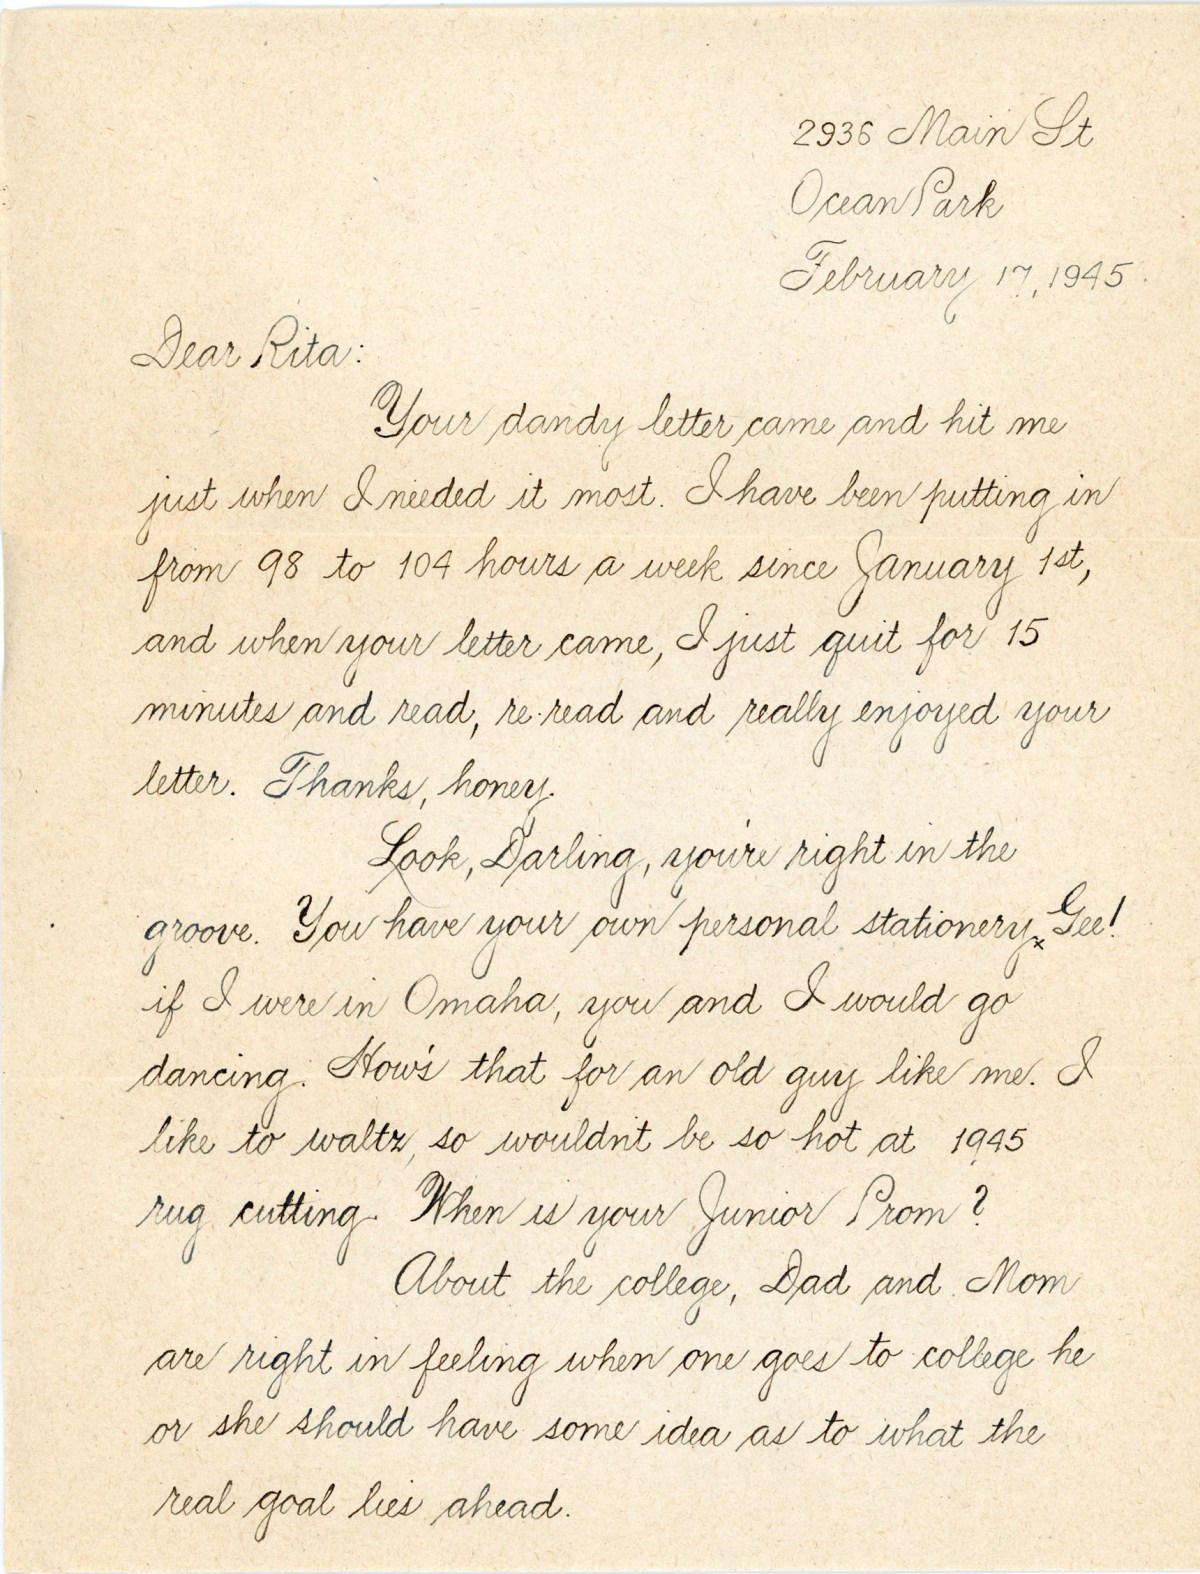 2936 Main St
Ocean Park
February 17, 1945
Dear Rita:
Your dandy letter came and hit me
just when I needed it most. I have been putting in
from 98 to 104 hours a week since January 1st,
and when your letter came, I just quit for 15
minutes and read, re-read and really enjoyed your
letter. Thanks, honey.
Look, Darling, you're right in the
groove. You have your own personal stationery. Gee!
if I were in Omaha, you and I would go
dancing. How's that for an old guy like me. I
like to waltz, so wouldn't be so hot at 1945
rug cutting. When is your Junior Prom?
About the college, Dad and Mom
are right in feeling when one goes to college he
or she should have some idea as to what the
real goal lies ahead.